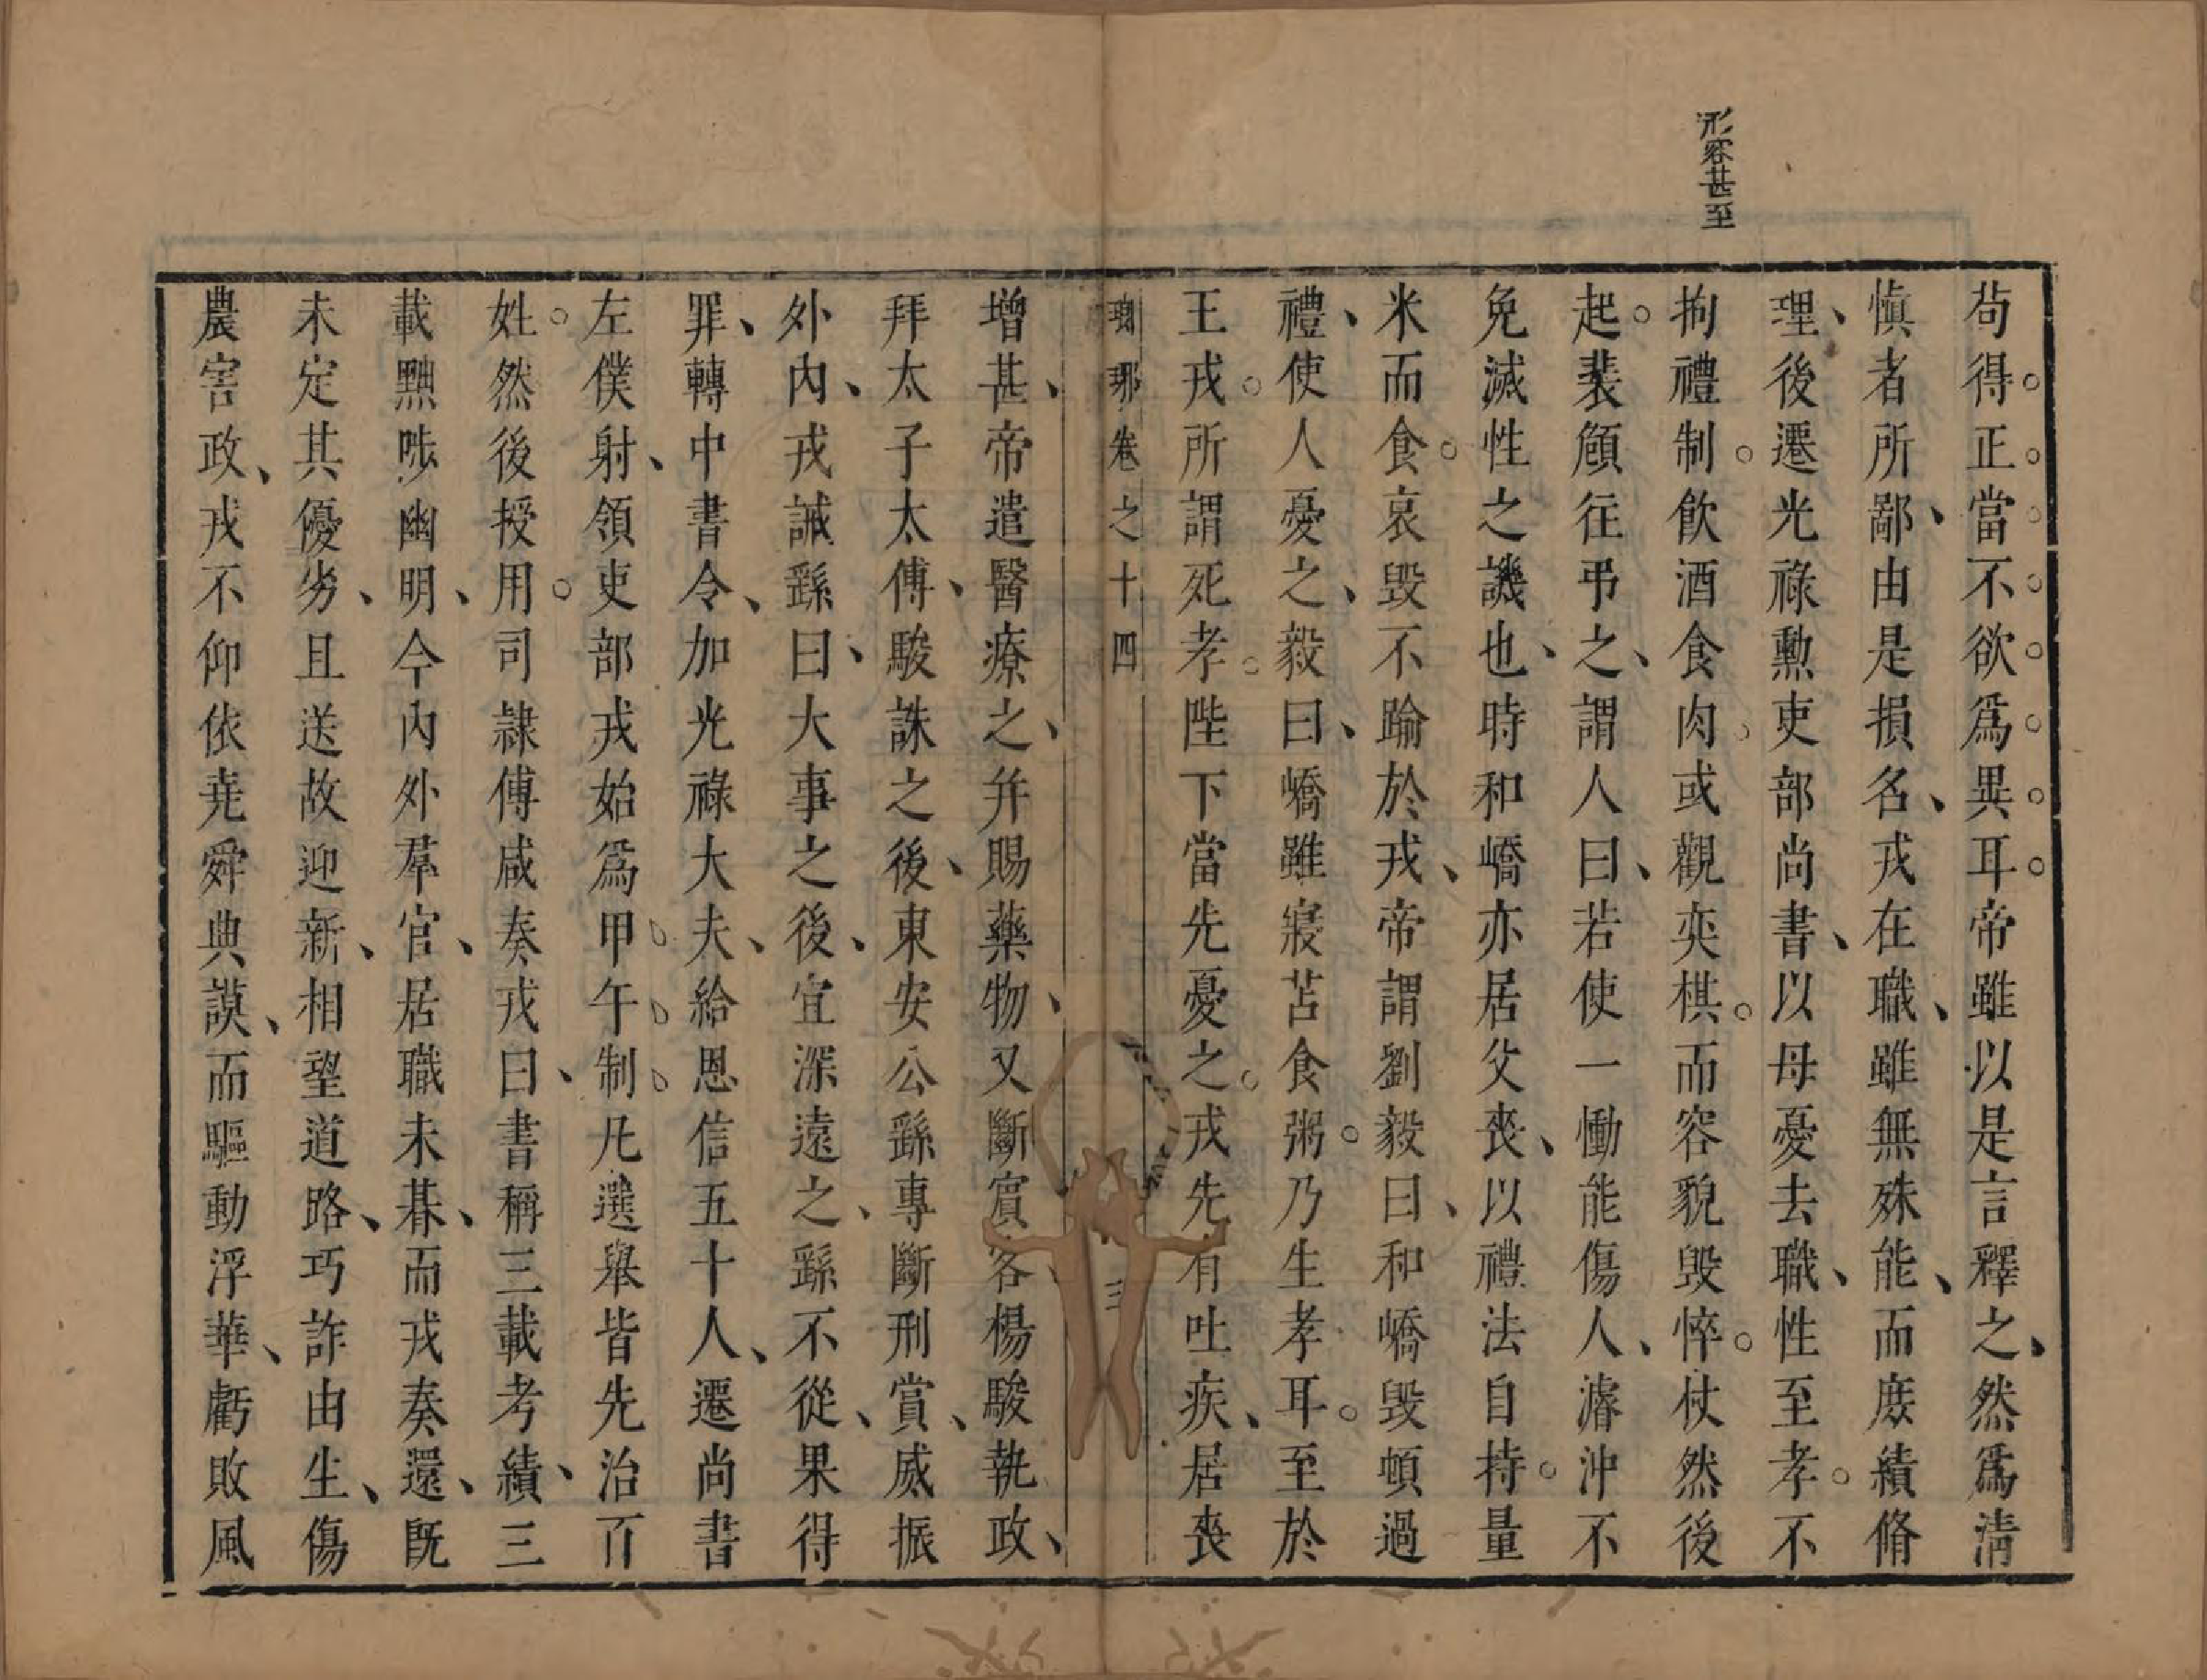 形容甚至
苟得正當不欲爲異耳帝雖以是言釋之然爲淸
愼者所鄙由是損名戎在職雖無殊能而庶績脩
理後遷光祿勲吏部尚書以母憂去職性至孝不
拘禮制飮酒食肉或觀奕棋而容貌毁悴杖然後
起裴頠往弔之謂人曰若使一慟能傷人濬沖不
免滅性之譏也時和嶠亦居父喪以禮法自持量
米而食哀毁不踰於戎帝謂劉毅曰和嶠毁頓過
禮使人憂之毅曰嶠雖寢苫食粥乃生孝耳至於
王戎所謂死孝陛下當先憂之戎先有吐疾居喪
瑯琊卷之十四 三
增甚帝遣醫療之并賜藥物又斷賓客楊駿執政
拜太子太傅駿誅之後東安公繇專斷刑賞威振
外內戎誡繇曰大事之後宜深遠之繇不從果得
罪轉中書令加光祿大夫給恩信五十人遷尚書
左僕射領吏部戎始爲甲午制凡選舉皆先治百
姓然後授用司隸傅咸奏戎曰書稱三載考績三
載黜陟幽明今內外羣官居職未朞而戎奏還旣
未定其優劣且送故迎新相望道路巧詐由生傷
農害政戎不仰依堯舜典謨而驅動浮華虧敗風